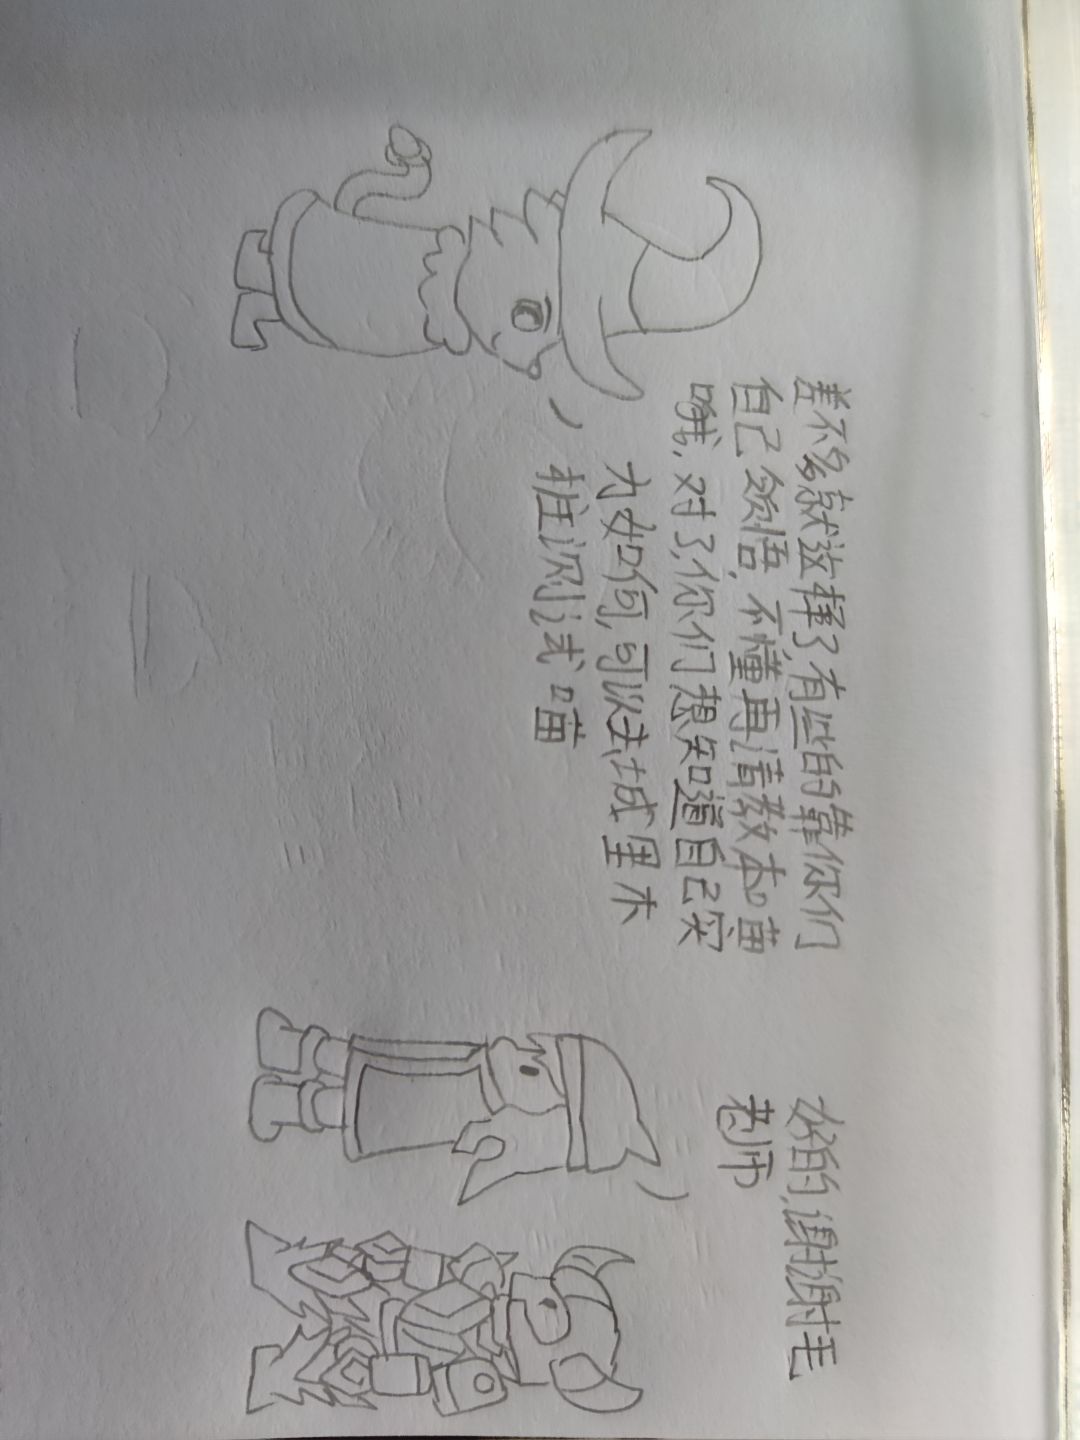 差不多就这样了,有些的靠你们
自己领悟,不懂再请教本喵
哦,对了,你们想知道自己实
力如何,可以去城里木
桩测试喵
好的,谢谢毛
老师